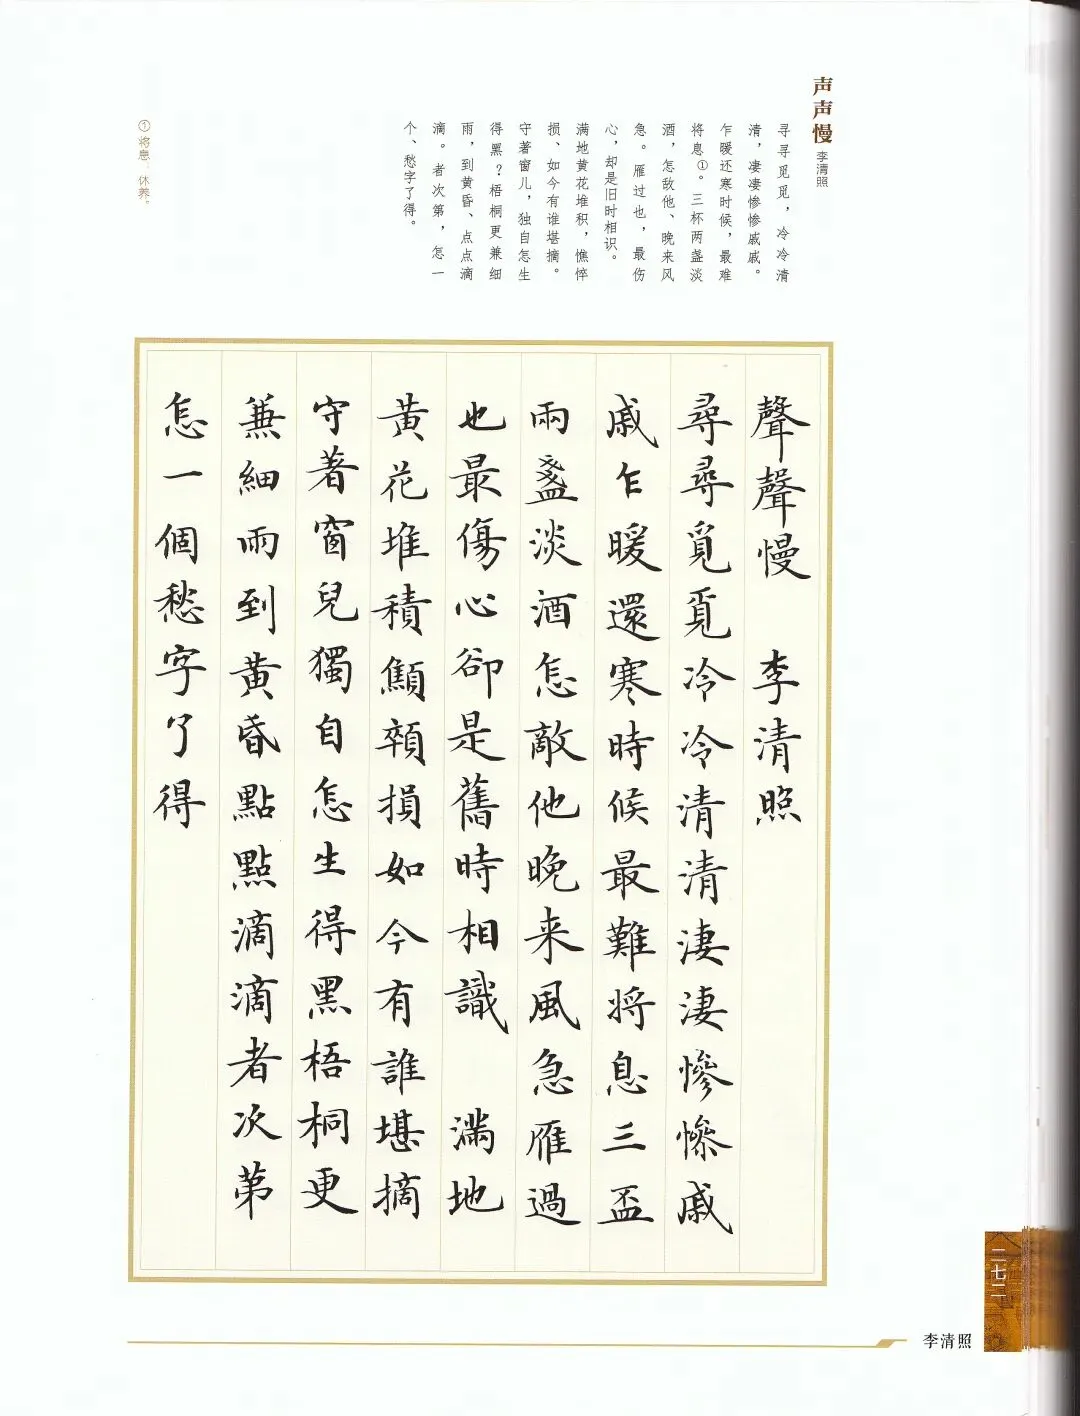 声声慢
李清照
寻寻觅觅，冷冷清
清，凄凄惨惨戚戚。
乍暖还寒时候，最难
将息①。三杯两盏淡
酒，怎敌他、晚来风
急。雁过也，最伤
心，却是旧时相识。
满地黄花堆积，憔悴
损、如今有谁堪摘。
守著窗儿，独自怎生
得黑？梧桐更兼细
雨，到黄昏、点点滴
滴。者次第，怎一
个、愁字了得。
①将息：休养。
聲聲慢 李清照
尋尋覓覓冷冷清清淒淒慘慘戚
戚乍暖還寒時候最難將息三盃
兩盞淡酒怎敵他晚来風急雁過
也最傷心卻是舊時相識 滿地
黃花堆積顦顇損如今有誰堪摘
守著窗兒獨自怎生得黑梧桐更
兼細雨到黃昏點點滴滴者次第
怎一個愁字了得
二七二
李清照